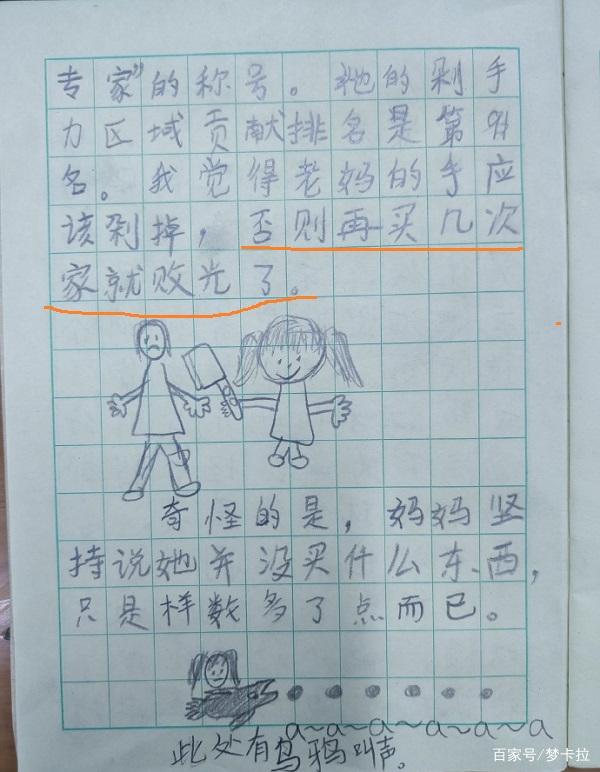 专家”的称号。她的剁手
力区域贡献排名是第94
名。我觉得老妈的手应
该剁掉，否则再买几次
家就败光了。
奇怪的是，妈妈坚
持说她并没买什么东西，
只是样数多了点而已。
a~a~a~a~a~a
此处有乌鸦叫声。
百家号/梦卡拉